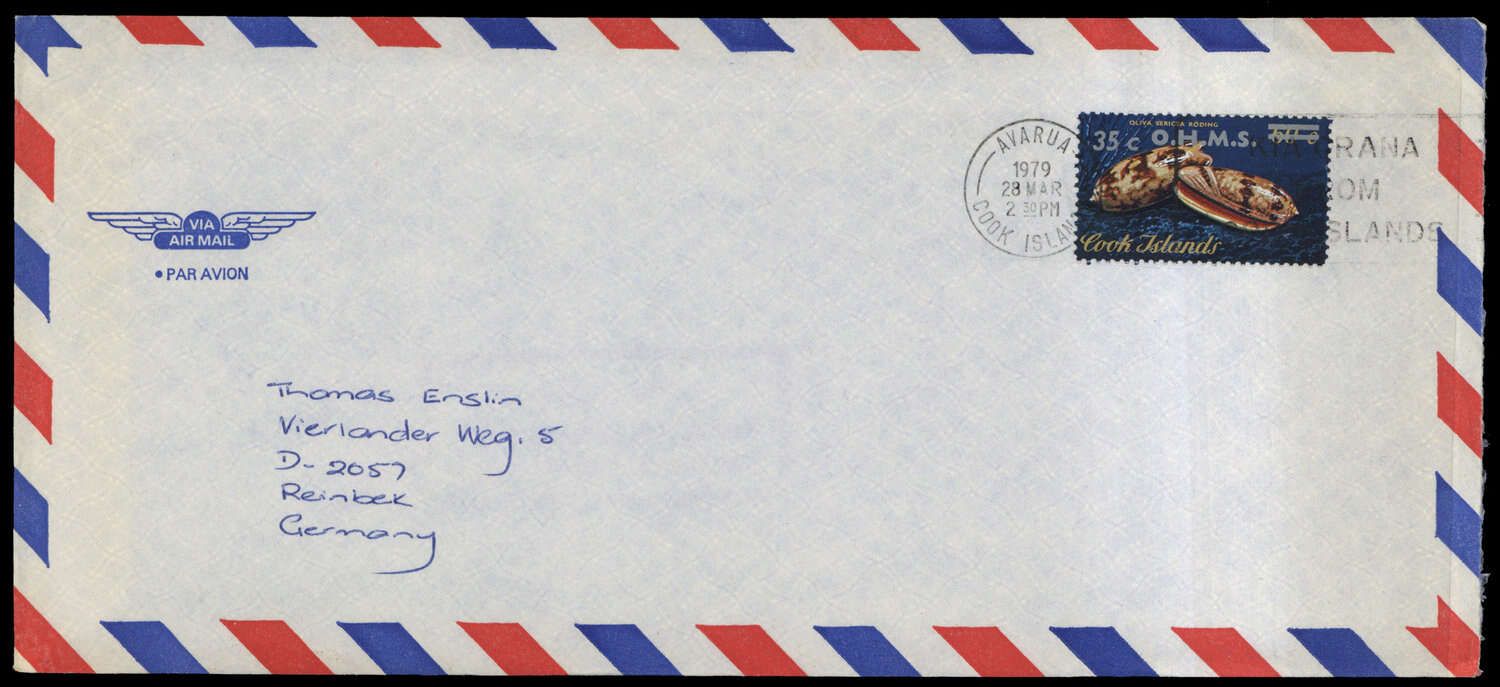 VIA
AIR MAIL
• PAR AVION
AVARUA
1979
28 MAR
2 30 PM
COOK ISLAN
OLIVA SERICEA RÖDING
35 c O.H.M.S. 50 c
Cook Islands
KIA ORANA
OM
SLANDS
Thomas Enslin
Vierlander Weg. 5
D- 2057
Reinbek
Germany